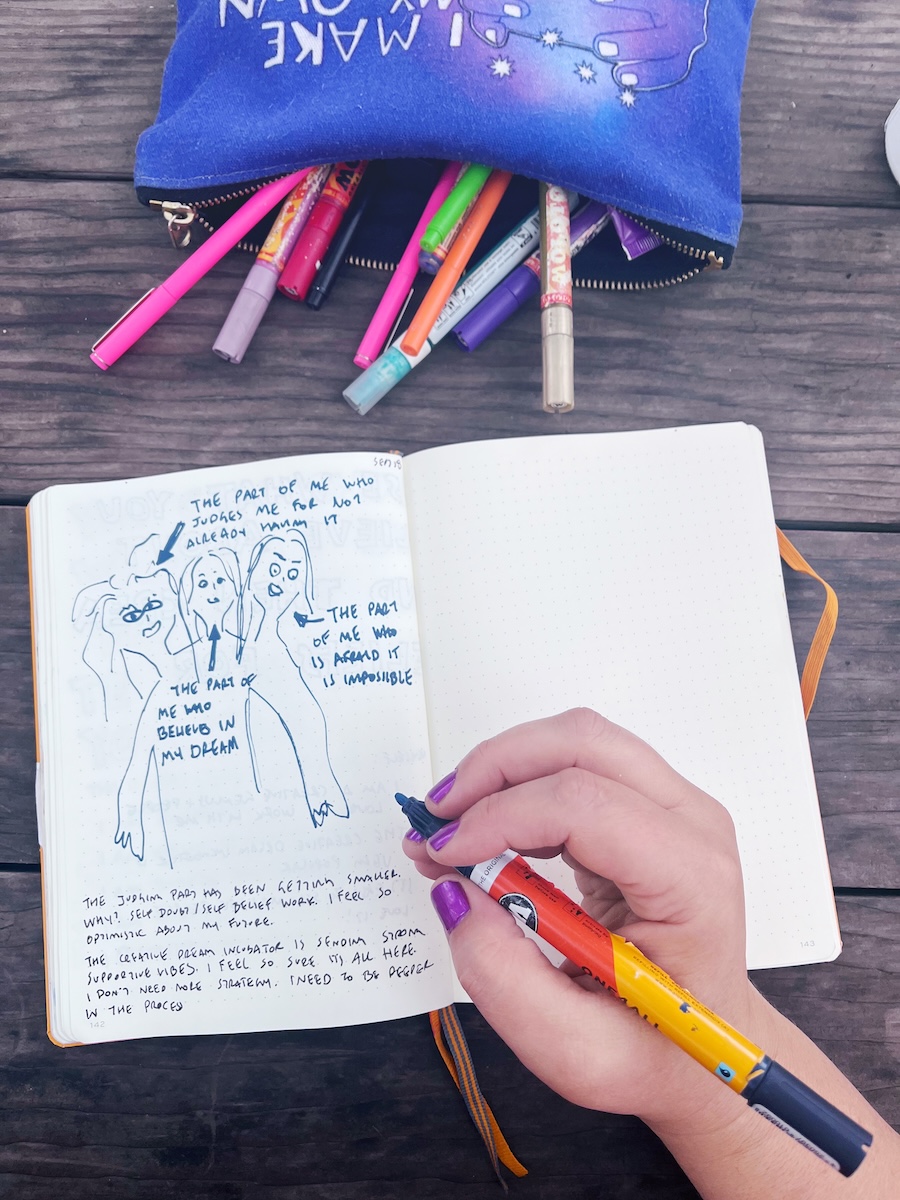 I MAKE
MY OWN
THE PART OF ME WHO
JUDGES ME FOR NOT
ALREADY HAVING IT
THE PART
OF ME WHO
IS AFRAID IT
IS IMPOSSIBLE
THE PART OF
ME WHO
BELIEVES IN
MY DREAM
THE JUDGING PART HAS BEEN GETTING SMALLER.
WHY? SELF DOUBT/SELF BELIEF WORK. I FEEL SO
OPTIMISTIC ABOUT MY FUTURE.
THE CREATIVE DREAM INCUBATOR IS SENDING STRONG
SUPPORTIVE VIBES. I FEEL SO SURE ITS ALL HERE.
I DON'T NEED MORE STRATEGY. I NEED TO BE DEEPER
IN THE PROCESS
142
143
THE ORIGINAL